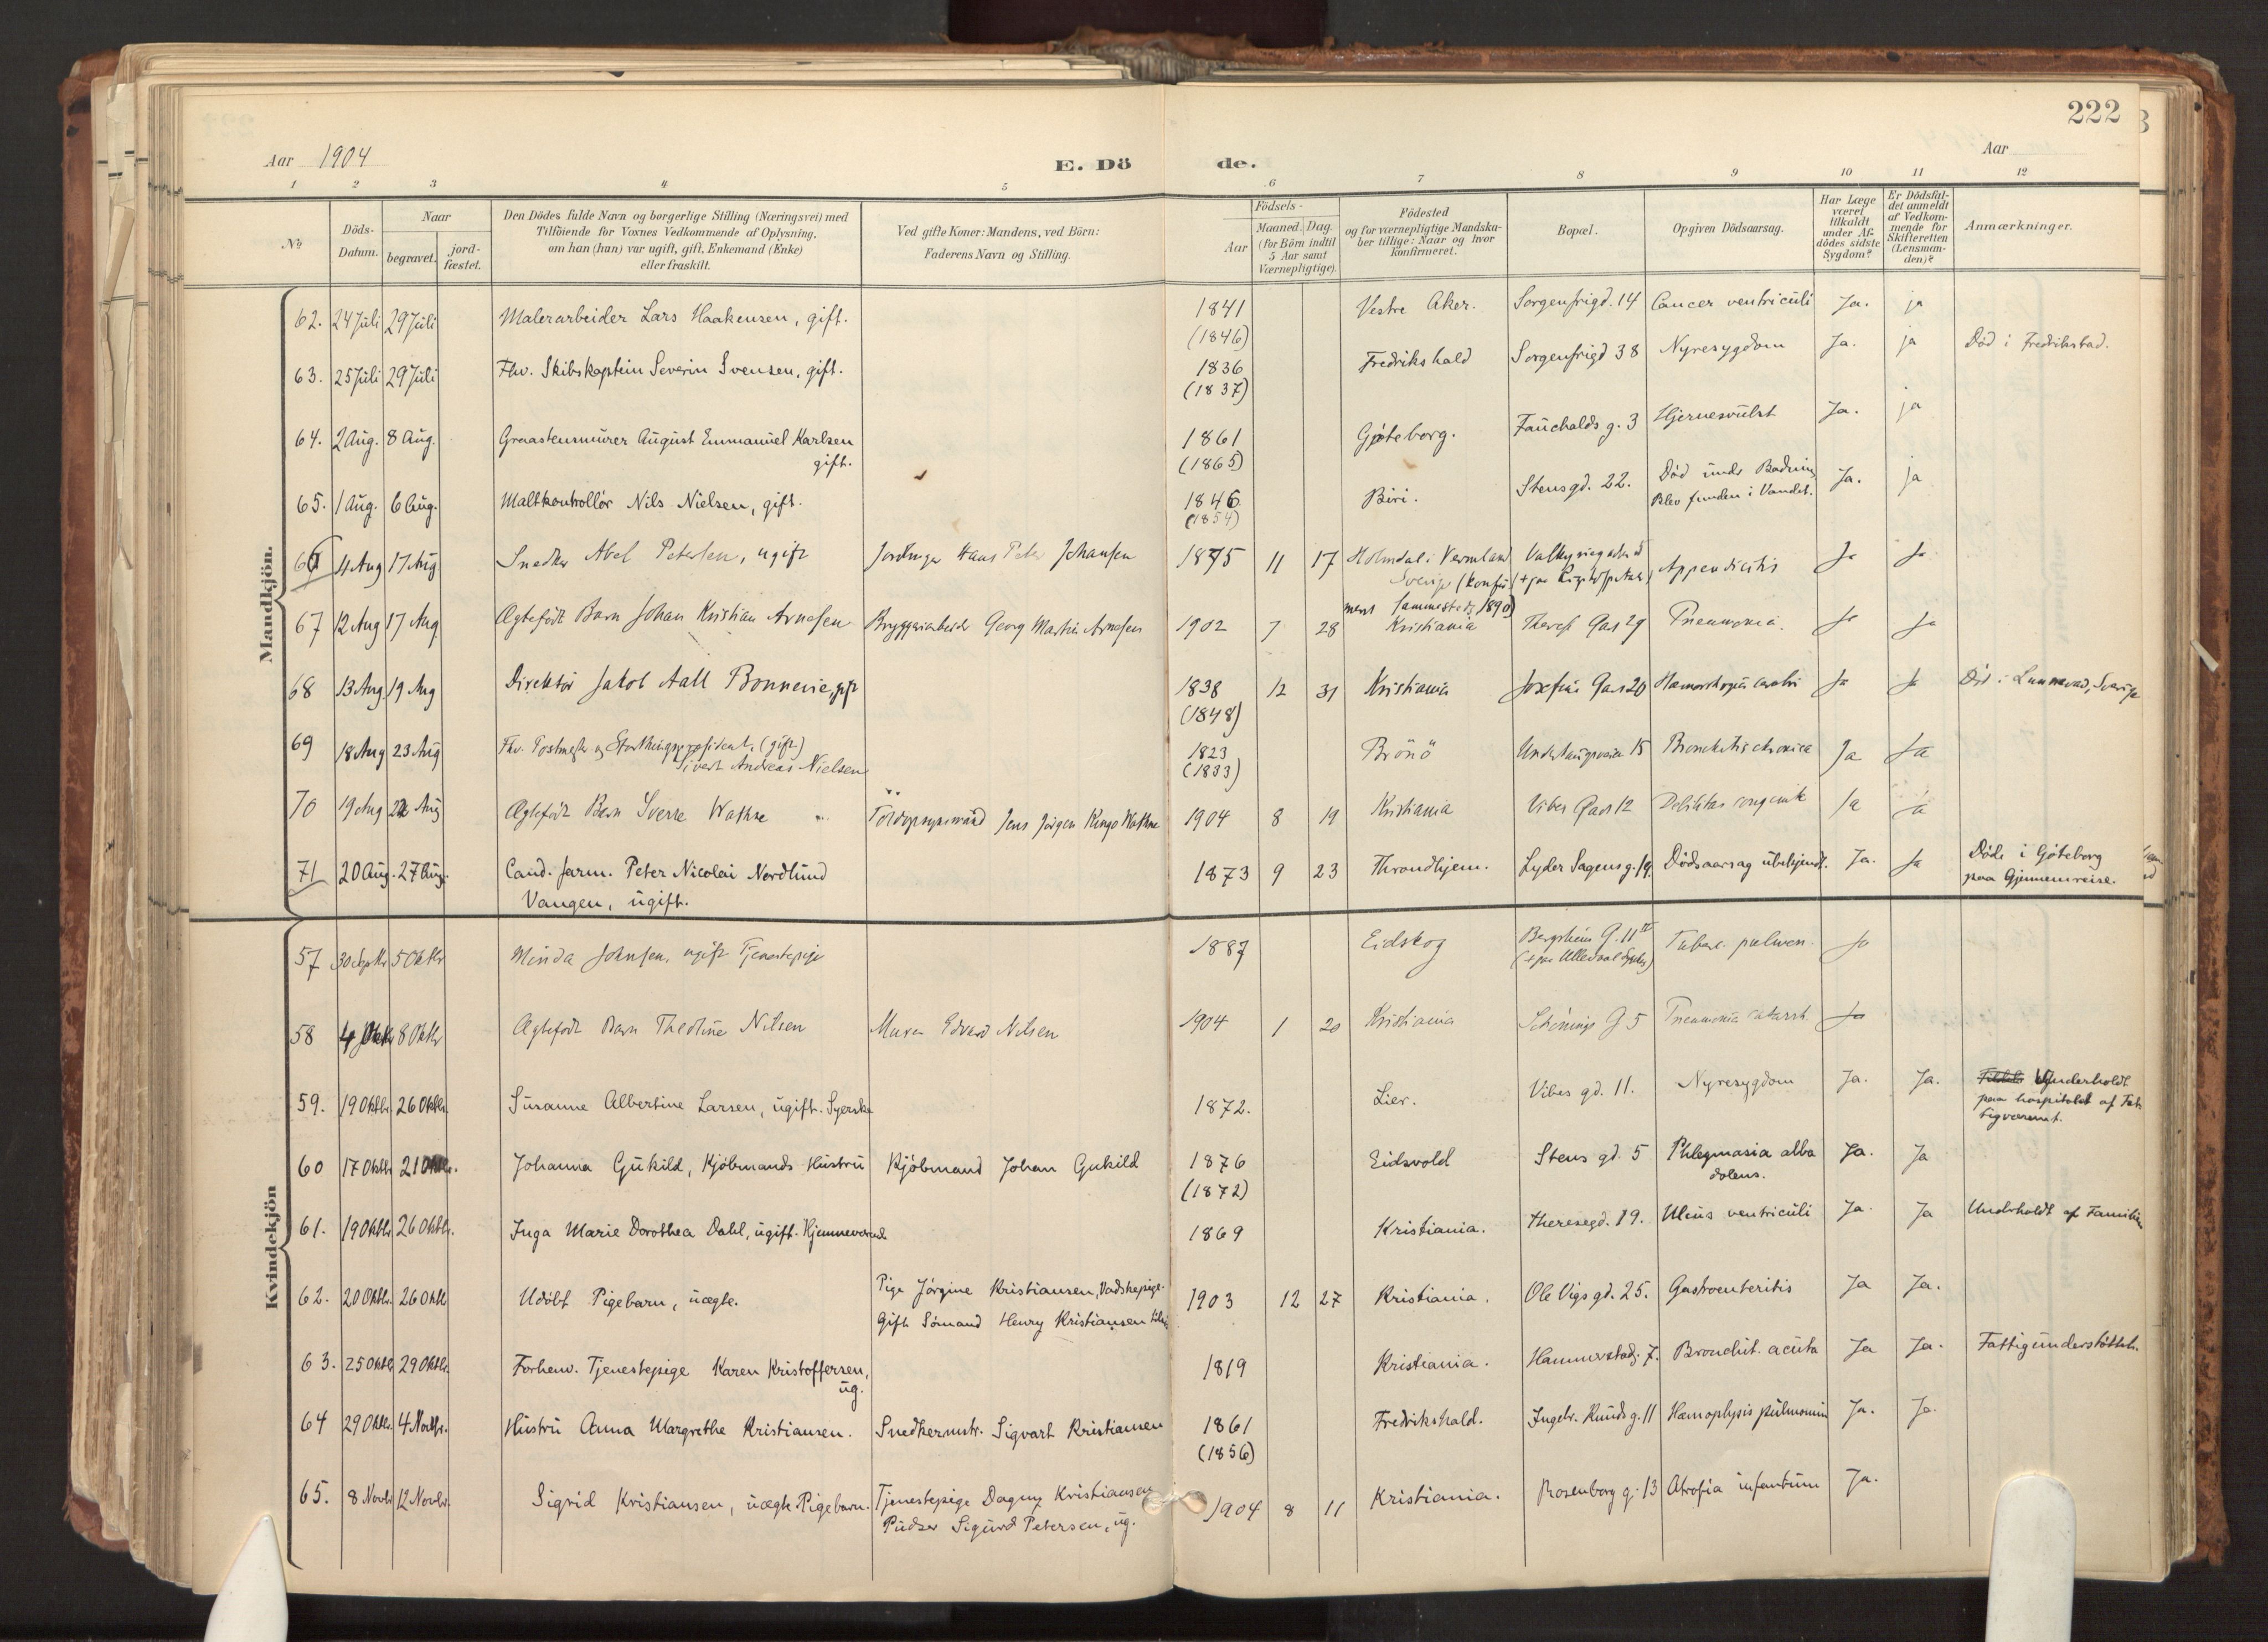 222
Aar 1904
E. Dö
de.
Aar
1 2 3 4 5 6 7 8 9 10 11 12
№
Döds-Datum.
Naar
begravet.
jord-fæstet.
Den Dödes fulde Navn og borgerlige Stilling (Næringsvei) med
Tilföiende for Voxnes Vedkommende af Oplysning,
om han (hun) var ugift, gift, Enkemand (Enke)
eller fraskilt.
Ved gifte Koner: Mandens, ved Börn:
Faderens Navn og Stilling.
Födsels-
Aar
Maaned. Dag.
(for Börn indtil
5 Aar samt
Værnepligtige).
Födested
og for værnepligtige Mandska-
ber tillige: Naar og hvor
konfirmeret.
Bopæl.
Opgiven Dödsaarsag.
Har Læge
været
tilkaldt
under Af-
dödes sidste
Sygdom?
Er Dödsfal-
det anmeldt
af Vedkom-
mende for
Skifteretten
(Lensman-
den)?
Anmærkninger.
Mandkjön.
62. 24 Juli 29 Juli Malerarbeider Lars Haakensen, gift. 1841 (1846) Vestre Aker. Sorgenfrigd. 14 Cancer ventriculi Ja. ja
63. 25 Juli 29 Juli Fhv. Skibskaptein Severin Svensen, gift. 1836 (1837) Fredrikshald Sorgenfrigd 38 Nyresygdom Ja. ja Död i Fredrikstad.
64. 2 Aug. 8 Aug. Graastensmurer August Emmanuel Karlsen
gift. 1861 (1865) Gjøteborg. Fauchalds g. 3 Hjernesvulst Ja. ja
65. 1 Aug. 6 Aug. Maltkontrollör Nils Nielsen, gift. 1846 (1854) Biri. Stensgd. 22. Död under Badning
Blev funden i Vandet. Ja. ja
66 4 Aug 17 Aug Snedker Abel Petersen, ugift Hans Peter Johansen 1875 11 17 Holmdal i Vermland
Sverige (konfir-
meret sammesteds 1890) Appendicitis Ja Ja
67 12 Aug 17 Aug Ægtefödt Barn Johan Kristian Arnesen Bryggeriarbeider Georg Martin Arnesen 1902 7 28 Kristiania Theres Gade 29 Pneumonia. Ja Ja
68 13 Aug 19 Aug Direktör Jakob Aall Bonnevie, gift 1838 (1848) 12 31 Kristiania Josefines Gade 20 Hæmorrhagia cerebri Ja Ja Död i Lunnevad, Sverige
69 18 Aug 23 Aug Fhv. Postmester og Storthingspræsident, (gift)
Sivert Andreas Nielsen 1823 (1833) Brönö Underhaugsveien 15 Bronchitis chronica Ja Ja
70 19 Aug Aug Ægtefödt Barn Sverre Wathne Jens Jörgen Kinge Wathne 1904 8 19 Kristiania Vibes Gade 12 Debilitas congenita Ja Ja
71 20 Aug. 27 Aug. Cand. farm. Peter Nicolai Nordlund
Vangen, ugift. 1873 9 23 Throndhjem. Lyder Sagens g. 19. Dödsaarsag ubekjendt. Ja. Ja Döde i Göteborg
paa Gjennemreise.
Kvindekjön
57 30 Septbr 5 Oktbr Minda Johnsen, ugift Tjenestepige 1887 Eidskog Bergsliens G. 11 IV
(+ paa Ullevaal Sygehus) Tuberc. pulmon. Ja
58 4 Oktbr 8 Oktbr Ægtefödt Barn Theoline Nilsen Murer Edvard Nilsen 1904 1 20 Kristiania Schönings G 5 Pneumonia catarrh. Ja
59. 19 Oktbr. 26 Oktbr. Susanne Albertine Larsen, ugift. Syerske 1872. Lier. Vibes gd. 11. Nyresygdom Ja. Ja. Underholdt
paa hospitalet af Fat-
tigvæsenet.
60 17 Oktbr. 21 Oktbr. Johanna Gukild, Kjöbmands Hustru Kjöbmand Johan Gukild 1876 (1872) Eidsvold Stens gd. 5 Phlegmasia alba
dolens. Ja. Ja
61. 19 Oktbr. 26 Oktbr. Inga Marie Dorothea Dahl, ugift. Hjemmeværende 1869 Kristiania. Theresegd. 19. Ulcus ventriculi Ja. Ja Underholdt af Familien
62. 20 Oktbr. 26 Oktbr Udöbt Pigebarn, uægte. Pige Jörgine Kristiansen, Vadskepige.
Gift Sömand Henry Kristiansen 1903 12 27 Kristiania. Ole Vigs gd. 25. Gastroenteritis Ja Ja.
63. 25 Oktbr. 29 Oktbr. Forhenv. Tjenestepige Karen Kristoffersen,
ug. 1819 Kristiania. Hammerstadg. 7. Bronchit. acuta Ja Ja. Fattigunderstöttet.
64 29 Oktbr. 4 Novbr. Hustru Anna Margrethe Kristiansen. Snedkermstr. Sigvart Kristiansen 1861 (1856) Fredrikshald. Ingebr. Knuds g. 11 Hæmoptysis pulmonum Ja. Ja.
65. 8 Novbr. 12 Novbr. Sigrid Kristiansen, uægte Pigebarn. Tjenestepige Dagny Kristiansen
Pudser Sigurd Petersen, ug. 1904 8 11 Kristiania. Rosenborg g. 13 Atrofia infantum Ja.